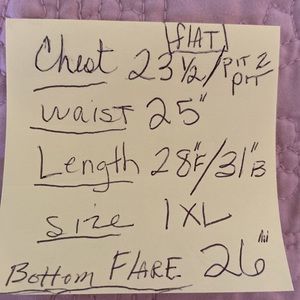 FlAT
Chest 23 1/2 / PIT 2 PIT
waist 25"
Length 28"F/31"B
Size 1XL
Bottom FlARE 26"